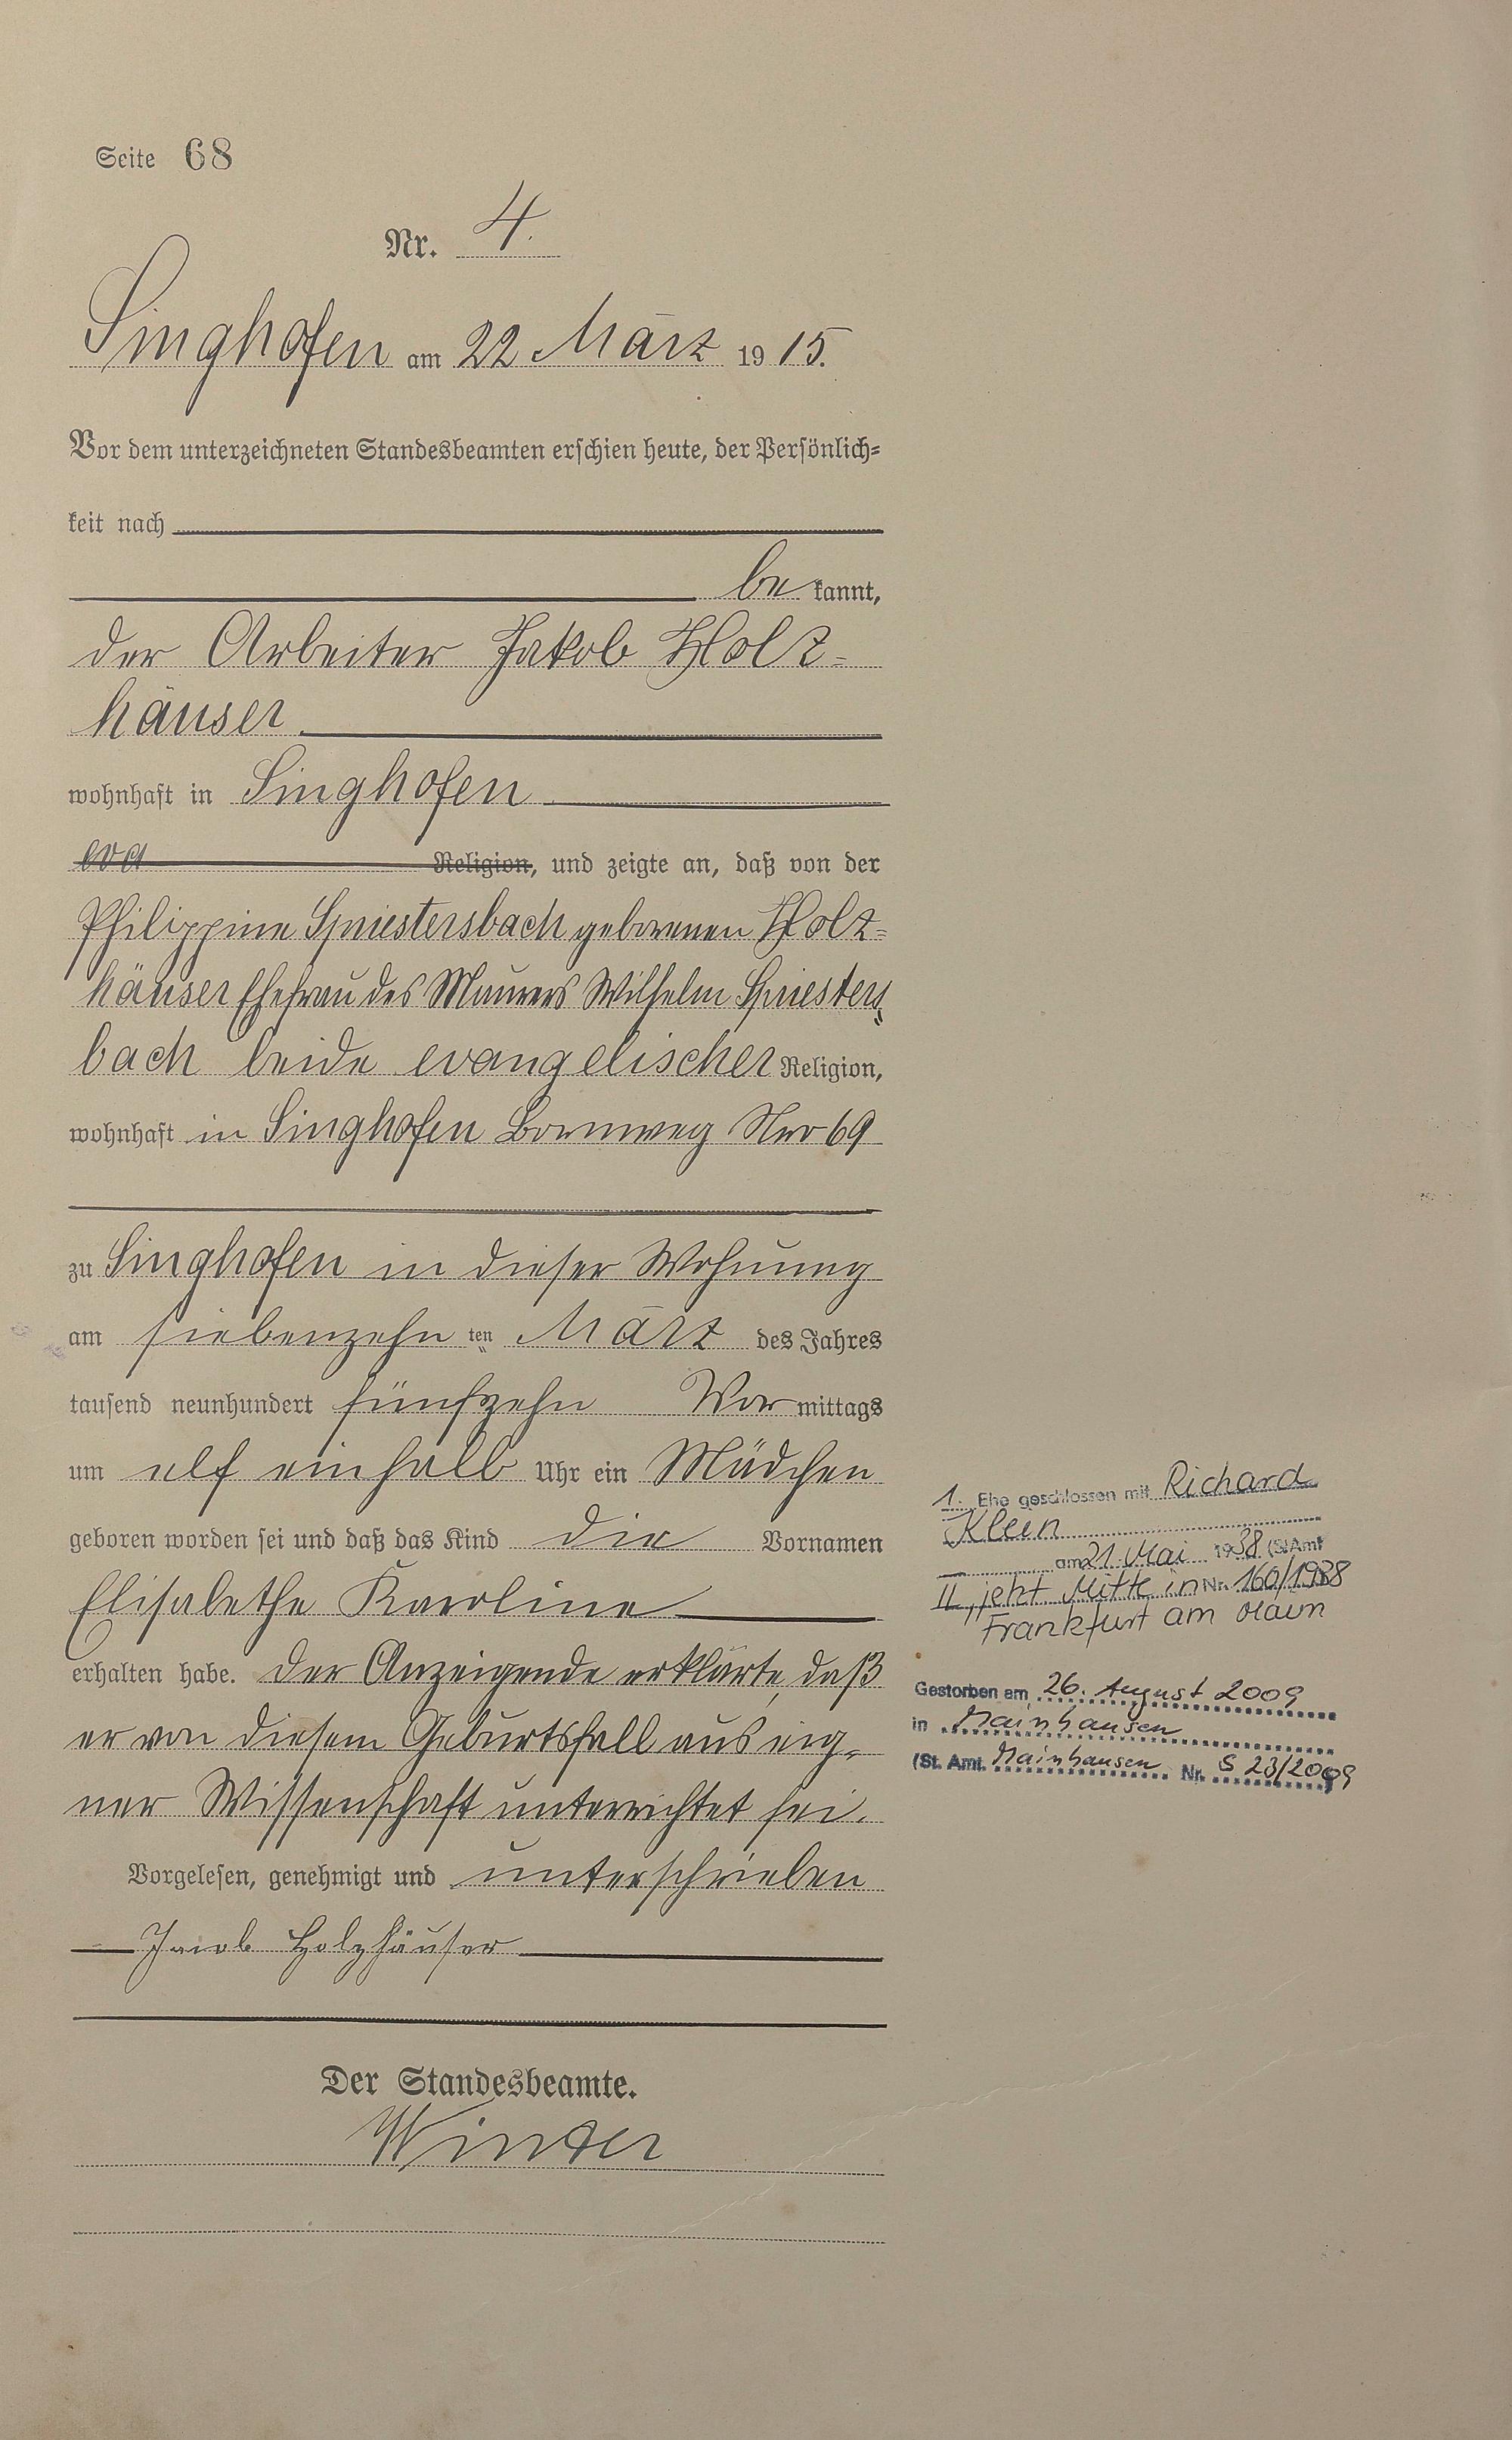 Seite 68
Nr. 4.
Singhofen am 22 März 1915.
Vor dem unterzeichneten Standesbeamten erschien heute, der Persönlich=
keit nach
be kannt,
der Arbeiter Jakob Holz=
häuser
wohnhaft in Singhofen
eva Religion, und zeigte an, daß von der
Philippine Spriestersbach geborenen Holz=
häuser Ehefrau des Maurers Wilhelm Spriesters
bach beide evangelischer Religion,
wohnhaft in Singhofen Bornweg Nro 69
zu Singhofen in dieser Wohnung
am siebenzehn ten März des Jahres
tausend neunhundert fünfzehn Vor mittags
um elf einhalb Uhr ein Mädchen
geboren worden sei und daß das Kind die Vornamen
Elisabethe Karoline
erhalten habe. Der Anzeigende erklärte, daß
er von diesem Geburtsfall aus eig=
ner Wissenschaft unterrichtet sei.
Vorgelesen, genehmigt und unterschrieben
Jacob Holzhäuser
Der Standesbeamte.
Winter
1. Ehe geschlossen mit Richard
Klein
am 21. Mai 1938 (St.Amt
II, jetzt Mitte in Nr. 160/1938
Frankfurt am Main
Gestorben am 26. August 2009
in Mainhausen
(St. Amt. Mainhausen Nr. S 23/2009